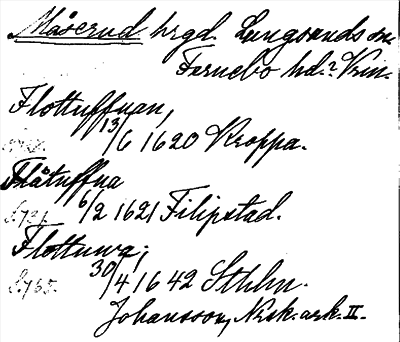 Måserud hrgd. Lungsunds sn.
Fernebo hd.? Vrm.
Flottuffnan,
13/6 1620 Kroppa.
Flåtuffna
S.731. 6/2 1621 Filipstad.
Flottuna;
S.765. 30/4 1642 Sthlm.
Johansson, Nor.ark. II.